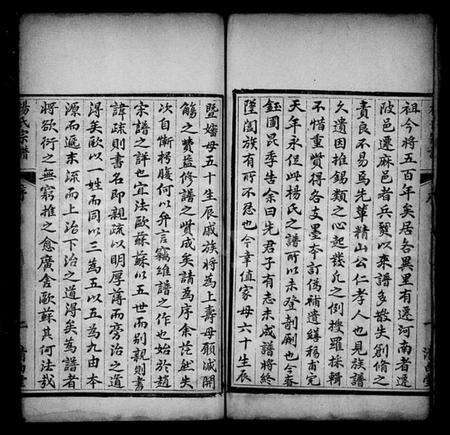 祖今將五百年矣居各異里有遷河南者還
陂邑遷麻邑者兵燹以來譜多散失創脩之
責良不易焉先輩精山公仁孝人也見族譜
久遺因推錫類之心起褩之倒搜羅採輯
不惜重貲得各支墨本訂偽補遺繕稿甫完
天年永促此楊氏之譜所以未登剞劂也今春
鈺園昆季告余曰先君子有志未成譜將終
墜闔族有所不忍也今幸值家母六十生辰
暨嬸母五十生辰戚族將為上壽母願減開
觴之費益修譜之貲成矣請為序余茫然失
次自慚枵腹何以弁言竊維譜之作也始於趙
宋譜之詳也宜法歐蘇蘇以五世而別親則書
諱疏則書名即親疏以明厚薄而旁治之道
得矣歐以一姓而同以三為五以五為九由本
源而遞末流而上治下治之道得矣為譜者
將欲衍之無窮推之愈廣舍歐蘇其何法哉
楊氏宗譜
清白堂